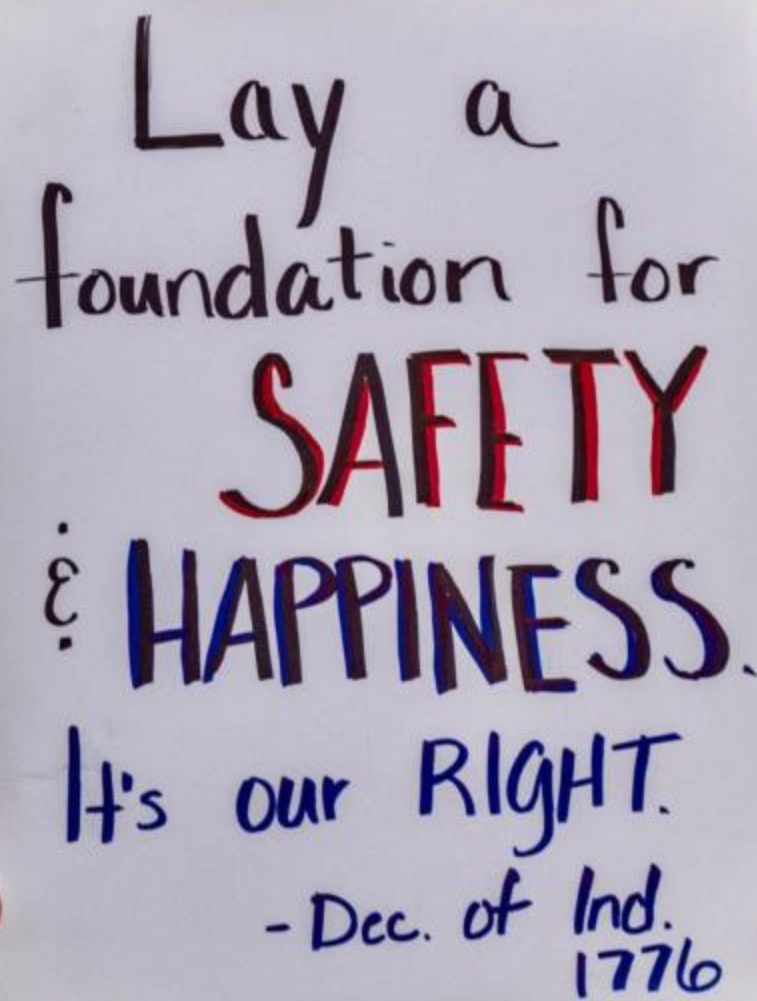 Lay a
foundation for
SAFETY
& HAPPINESS.
It's our RIGHT.
- Dec. of Ind.
1776